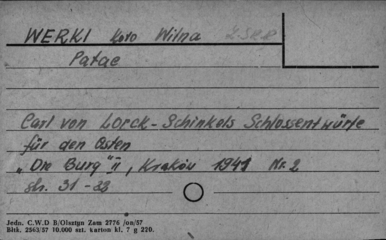 WERKI koło Wilna ZSRR
Pałac
Carl von Lorck - Schinkels Schlossentwürfe
für den Osten
„Die Burg" II, Kraków 1941 Nr. 2
str. 31 -
Jedn. C.W.D B/Olsztyn Zam 2776 /on/57
Bltk. 2563/57 10.000 szt. karton kl. 7 g 220.